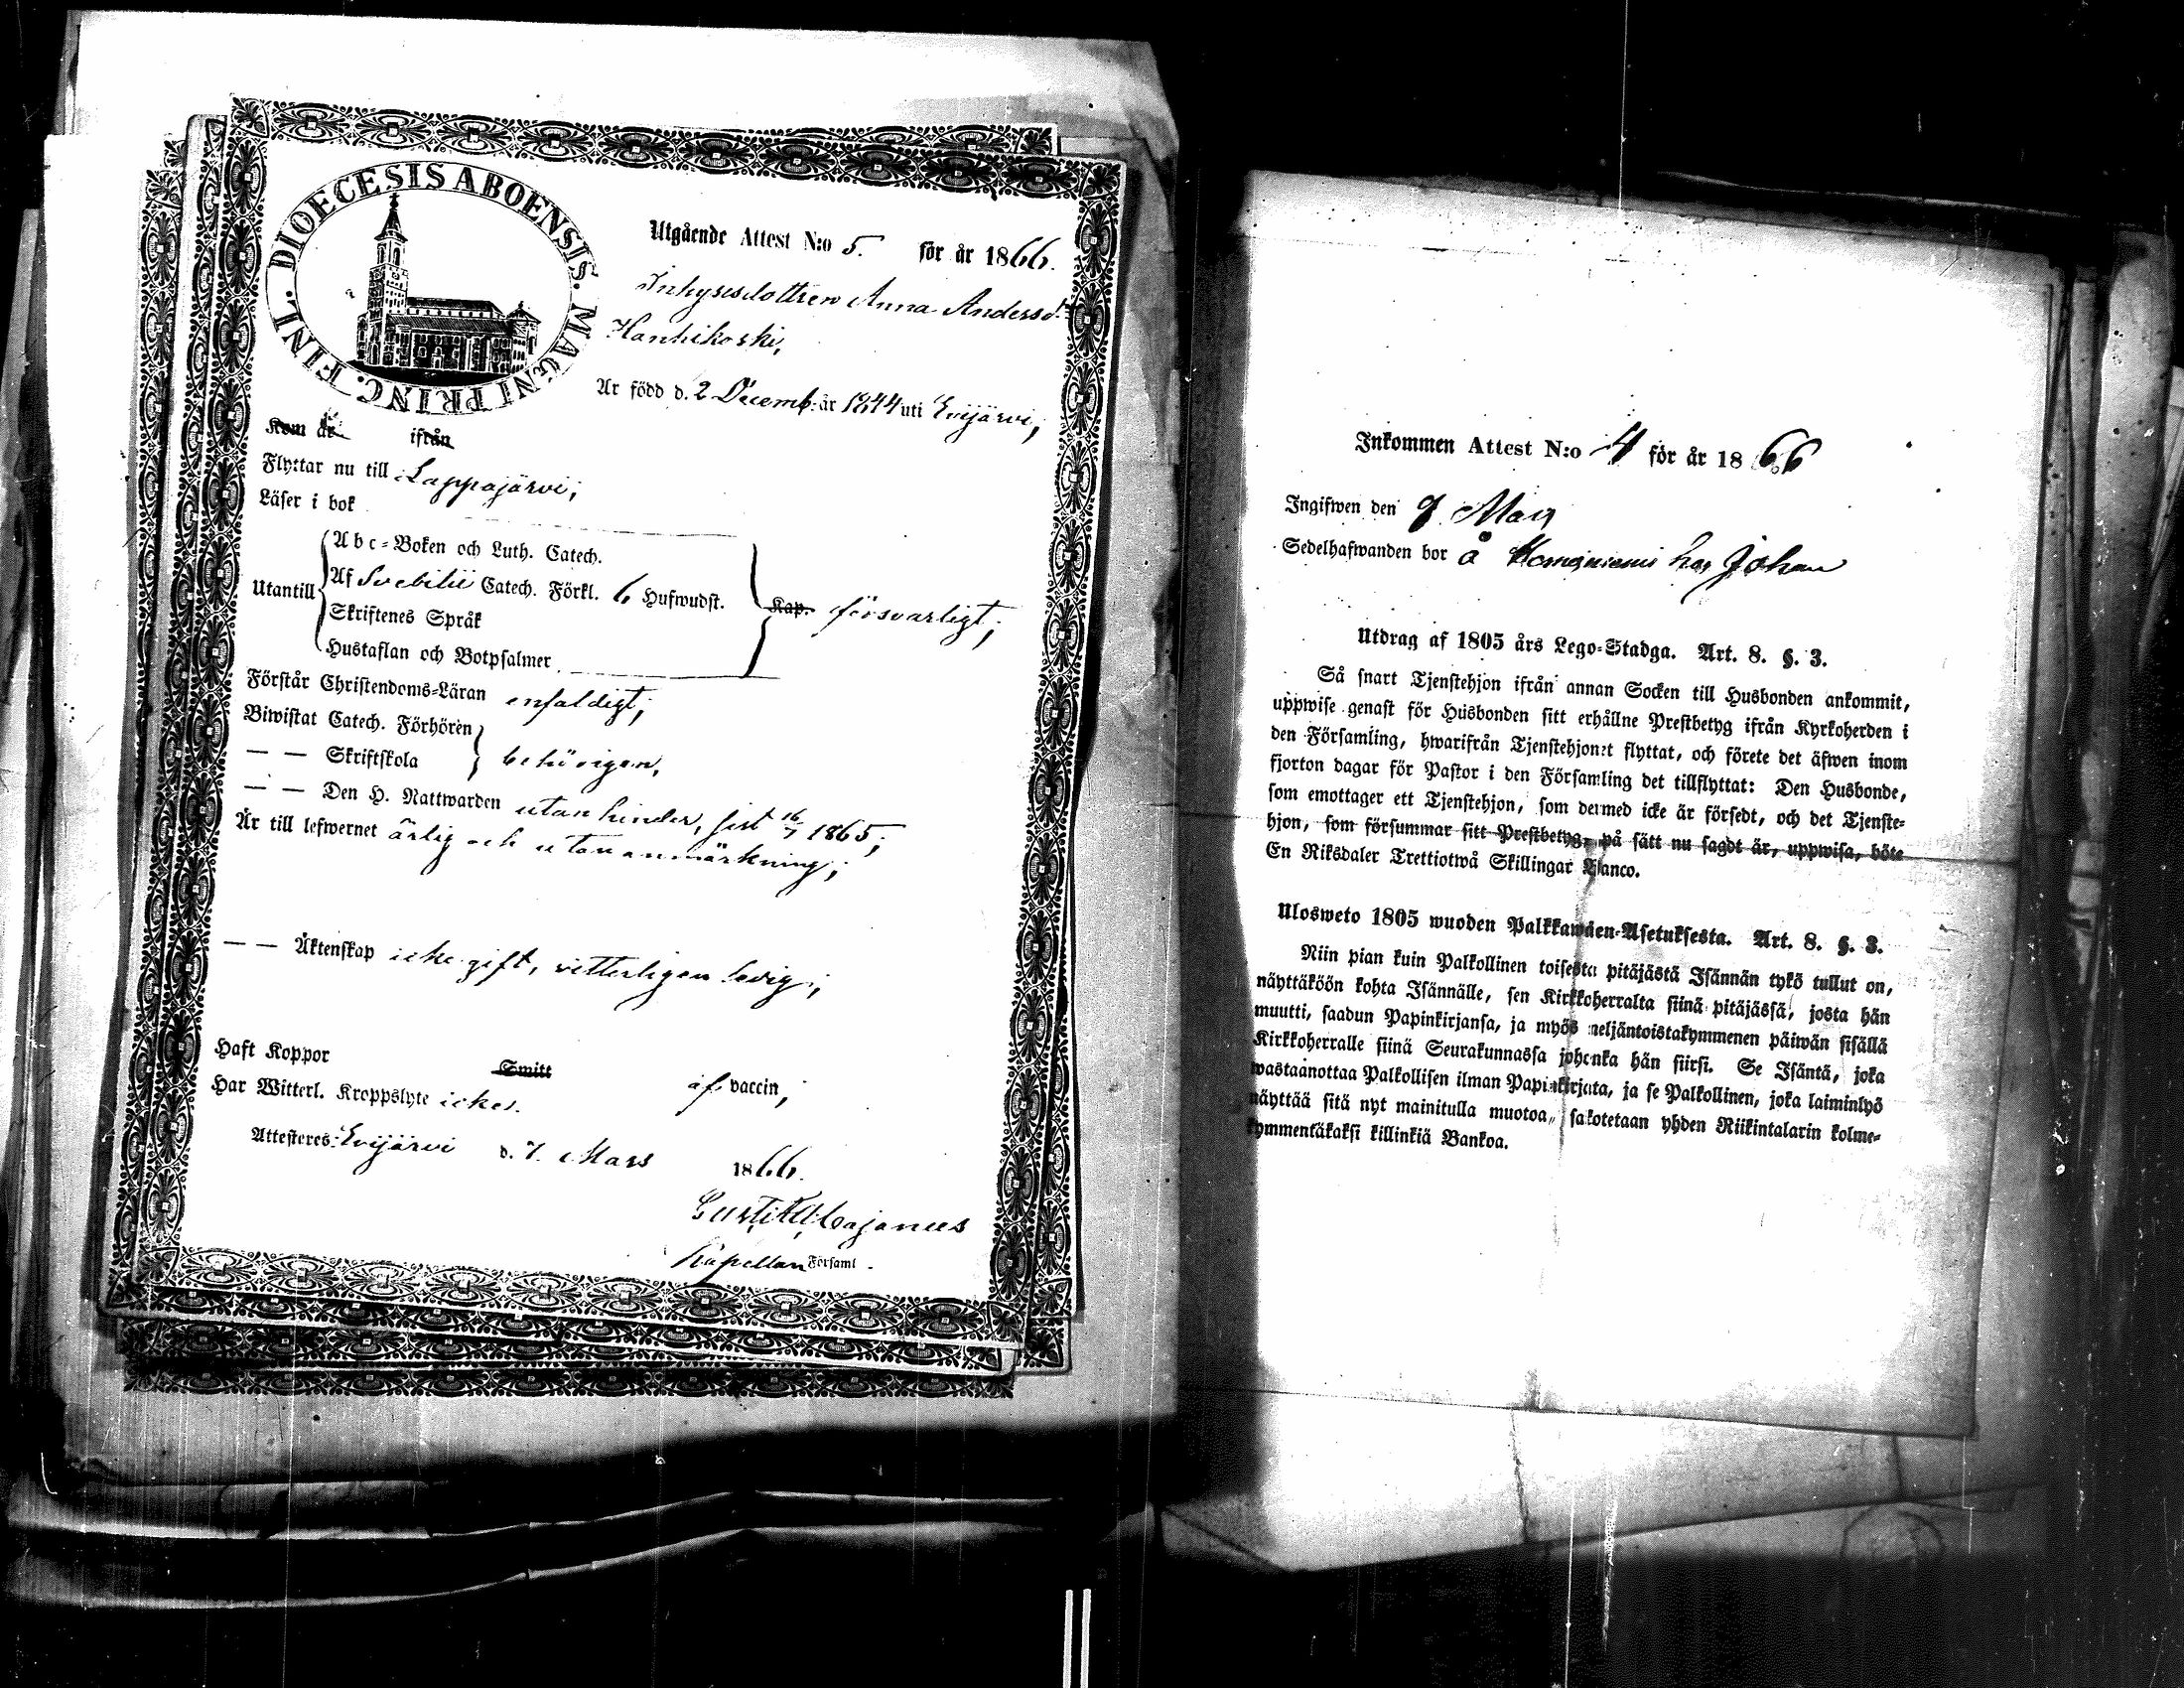 DIOECESIS ABOENSIS. MAGNI PRINC. FINL.
Utgående Attest N:o 5. för år 1866.
Inhysesdottren Anna Andersd:r
Hanhikoski,
Är född d. 2 Decemb: år 1844 uti Evijärvi,
Kom år ifrån
Flyttar nu till Lappajärvi;
Läser i bok
Utantill
Abc-Boken och Luth. Catech.
Af Svebilii Catech. Förkl. 6 Hufwudst.
Skriftenes Språk
Hustaflan och Botpsalmer
Kap. försvarligt;
Förstår Christendoms-Läran enfaldigt;
Biwistat Catech. Förhören
— — Skriftskola
behörigen,
— — Den H. Nattwarden utan hinder, sist 16/7 1865;
Är till lefwernet ärlig och utan anmärkning;
— — Äktenskap icke gift, vitterligen ledig;
Haft Koppor Smitt af vaccin;
Har Witterl. Kroppslyte icke.
Attesteres: Evijärvi d. 7. Mars 1866.
Cajanus
Kapellan Församl.
Inkommen Attest N:o 4 för år 1866
Ingifwen den 9 Mars
Sedelhafwanden bor å hos Johan
Utdrag af 1805 års Lego-Stadga. Art. 8. §. 3.
Så snart Tjenstehjon ifrån annan Socken till Husbonden ankommit,
uppwise genast för Husbonden sitt erhållne Prestbetyg ifrån Kyrkoherden i
den Församling, hwarifrån Tjenstehjonet flyttat, och förete det äfwen inom
fjorton dagar för Pastor i den Församling det tillflyttat: Den Husbonde,
som emottager ett Tjenstehjon, som dermed icke är försedt, och det Tjenste-
hjon, som försummar sitt Prestbetyg, på sätt nu sagdt är, uppwisa, böte
En Riksdaler Trettiotwå Skillingar Banco.
Ulosweto 1805 wuoden Palkkawäen-Asetuksesta. Art. 8. §. 3.
Niin pian kuin Palkollinen toisesta pitäjästä Isännän tykö tullut on,
näyttäköön kohta Isännälle, sen Kirkkoherralta siinä pitäjässä, josta hän
muutti, saadun Papinkirjansa, ja myös neljäntoistakymmenen päiwän sisällä
Kirkkoherralle siinä Seurakunnassa johonka hän siirsi. Se Isäntä, joka
wastaanottaa Palkollisen ilman Papinkirjata, ja se Palkollinen, joka laiminlyö
näyttää sitä nyt mainitulla muotoa, sakotetaan yhden Riikintalarin kolme-
kymmentäkaksi killinkiä Bankoa.